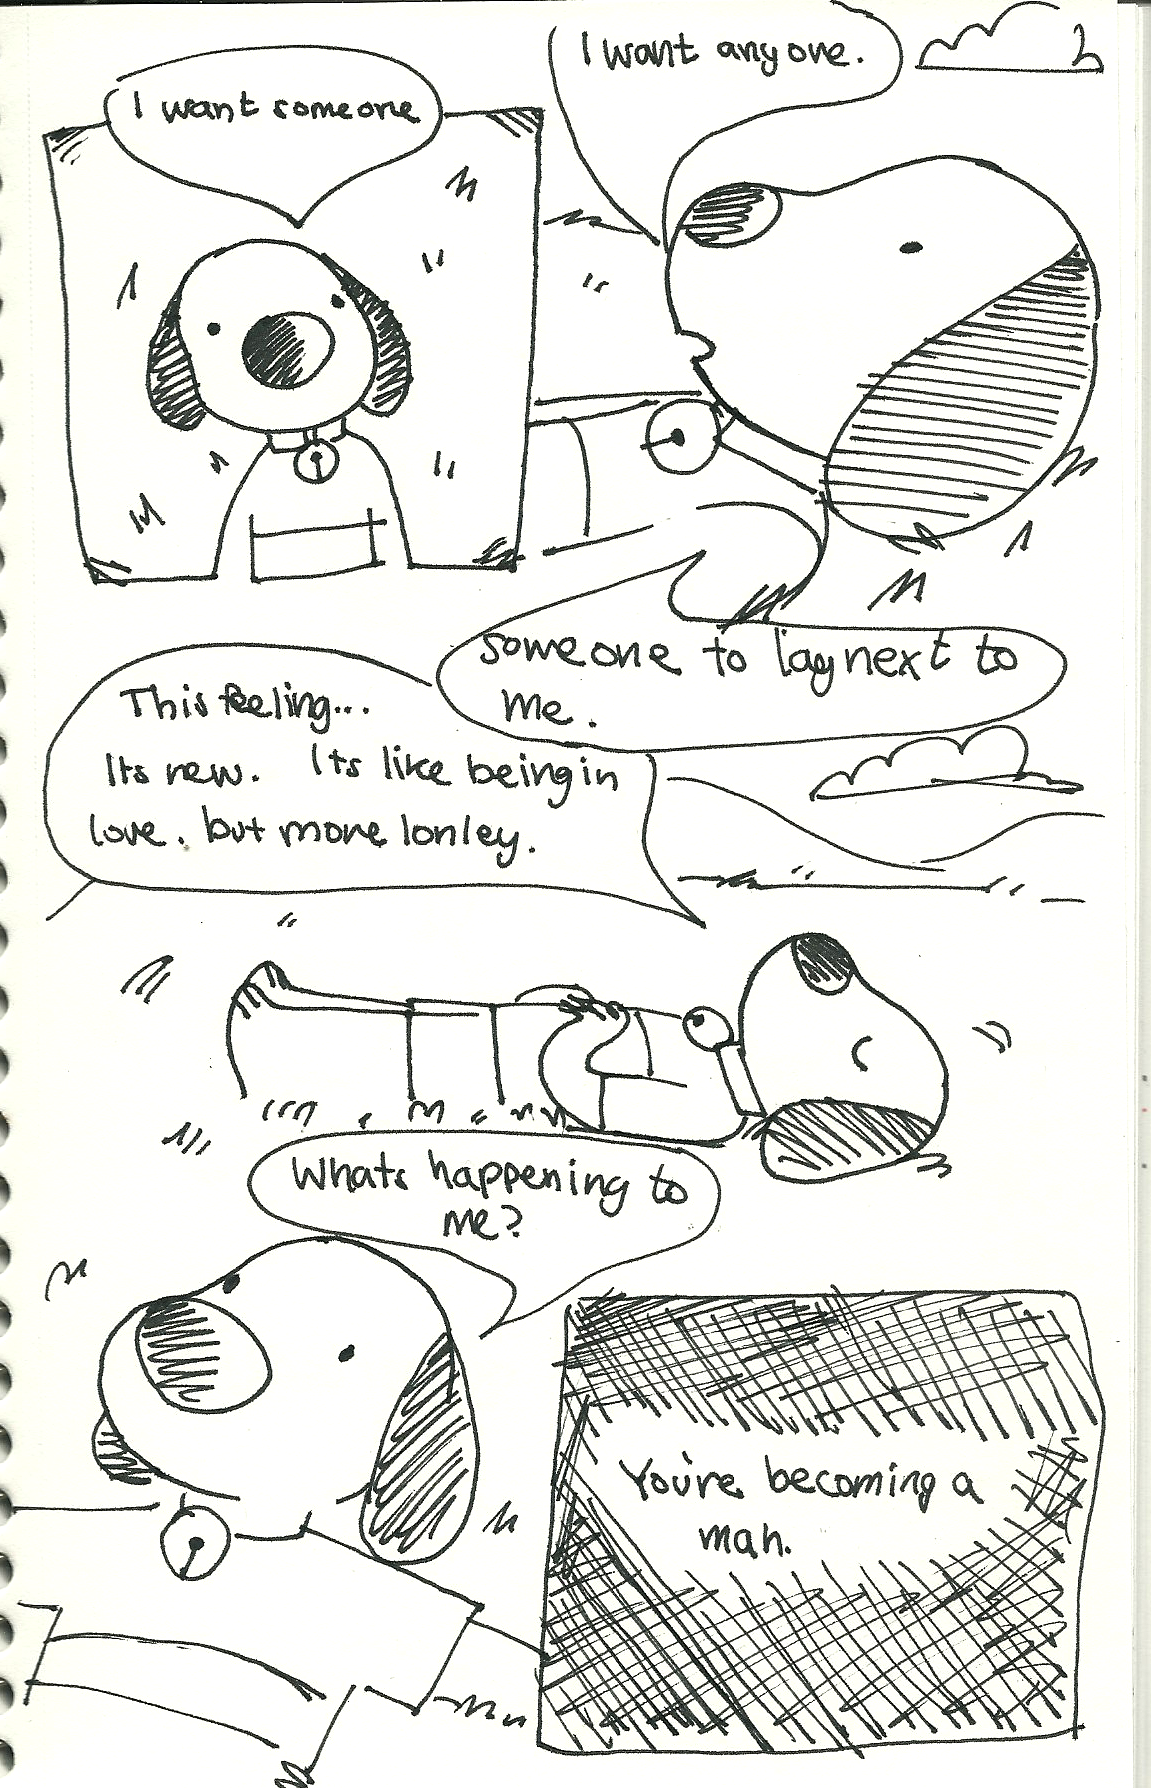 I want someone
I want anyone.
someone to lay next to
me.
This feeling...
Its new. Its like being in
love. but more lonley.
Whats happening to
me?
You're becoming a
man.